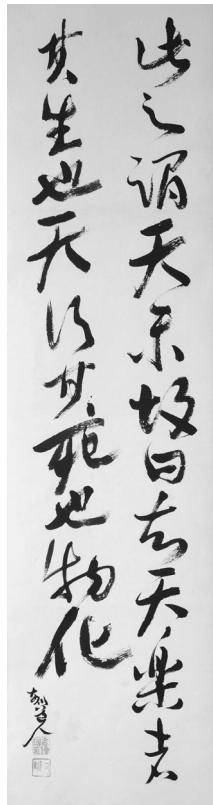 此之謂天樂故曰知天樂者
其生也天行其死也物化